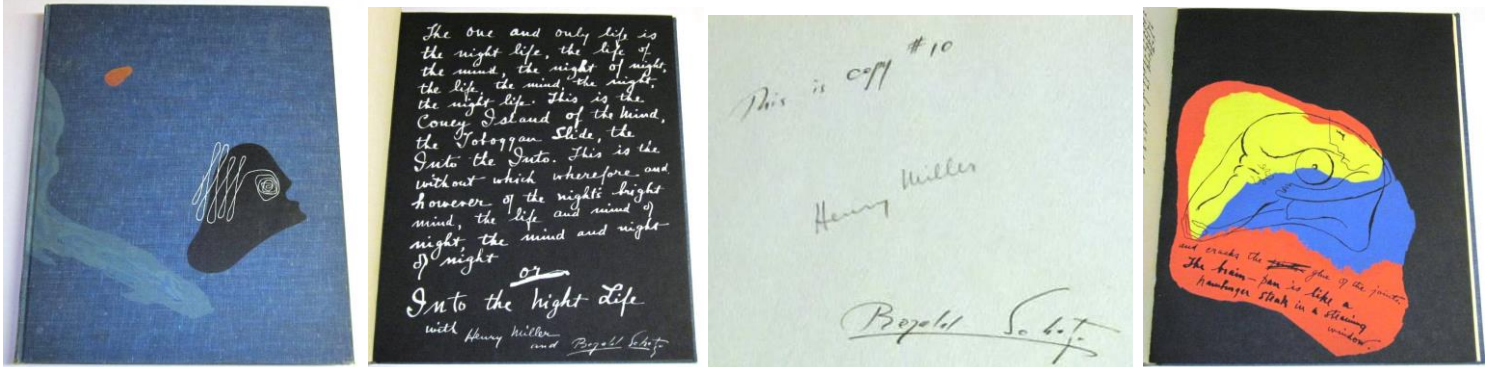 The one and only life is
the night life, the life of
the mind, the night of night,
the life, the mind, the night,
the night life. This is the
Coney Island of the Mind,
the Toboggan Slide, the
Into the Into. This is the
without which wherefore and
however of the night's bright
mind, the life and mind of
night, the mind and night
of night
or
Into the Night Life
with Henry Miller
and Bezalel Schatz
This is copy #10
Henry Miller
Bezalel Schatz
and cracks the glue of the joints
The brain-pan is like a
hamburger steak in a steaming
window.